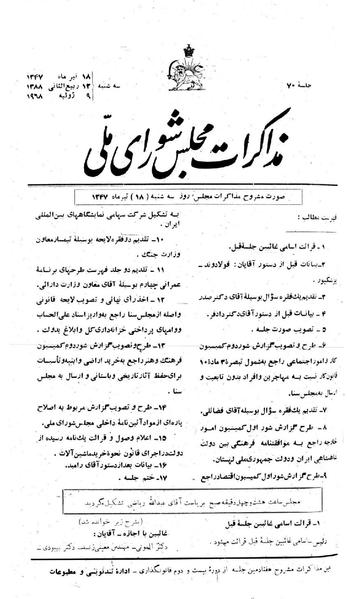 جلسه ۷۰
سه شنبه
۱۸ تیر ماه ۱۳۴۷
۱۲ ربیع‌الثانی ۱۳۸۸
۹ ژوئیه ۱۹۶۸
مذاکرات مجلس شورای ملی
صورت مشروح مذاکرات مجلس روز سه شنبه (۱۸) تیر ماه ۱۳۴۷
فهرست مطالب:
۱ - قرائت اسامی غائبین جلسه قبل.
۲- بیانات قبل از دستور آقایان: فولادوند-
پزشکپور.
۳- تقدیم یک فقره سؤال بوسیله آقای دکتر صدر
۴- بیانات قبل از دستور آقای دکتر دادفر.
۵ - تصویب صورت جلسه.
۶- طرح و تصویب گزارش شور دوم کمیسیون
کار و امور اجتماعی راجع به شمول تبصره ۳ ماده ۱۰
قانون کار نسبت به مهاجرین و افراد بدون تابعیت و
ارسال به مجلس سنا.
۷- تقدیم یک فقره سؤال بوسیله آقای فضائلی.
۸- طرح گزارش شور اول کمیسیون امور
خارجه راجع به موافقتنامه فرهنگی بین دولت
شاهنشاهی ایران و دولت جمهوری ملی لهستان.
۹- طرح گزارش شور اول کمیسیون اقتصاد راجع
به تشکیل شرکت سهامی نمایشگاههای بین‌المللی
ایران.
۱۰- تقدیم دو فقره لایحه بوسیله تیمسار معاون
وزارت جنگ.
۱۱- تقدیم دو جلد فهرست طرحهای برنامه
عمرانی چهارم بوسیله آقای معاون وزارت دارائی.
۱۲- اخذ رأی نهائی و تصویب لایحه قانونی
واصله از مجلس سنا راجع به واریز اسناد علی الحساب
و وامهای پرداختی خزانه‌داری کل و ابلاغ بدولت.
۱۳- طرح و تصویب گزارش شور دوم کمیسیون
فرهنگ و هنر راجع به خرید اراضی و ابنیه و تأسیسات
برای حفظ آثار تاریخی و باستانی و ارسال به مجلس
سنا.
۱۴- طرح و تصویب گزارش مربوط به اصلاح
پاره‌ای از مواد آئین‌نامه داخلی مجلس شورای ملی.
۱۵- اعلام وصول و قرائت یک نامه رسیده از
دولت در اجرای قانون نحوه خرید ماشین آلات.
۱۶- بیانات بعد از دستور آقای رامبد.
۱۷- ختم جلسه.
مجلس ساعت هشت و چهل دقیقه صبح بریاست آقای عبدالله ریاضی تشکیل گردید
۱- قرائت اسامی غائبین جلسه قبل
رئیس - اسامی غائبین جلسه قبل قرائت میشود.
(بشرح زیر خوانده شد)
غائبین با اجازه - آقایان:
دکتر الموتی- مهندس معینی زند- دکتر بهبودی-
متن مذاکرات مشروح هفتادمین جلسه از دوره بیست و دوم قانونگذاری - اداره تندنویسی و مطبوعات